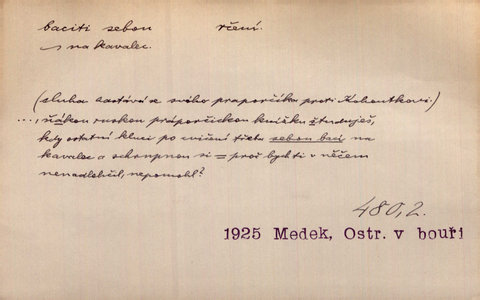 baciti sebou rčení.
na kavalec.
(sluha zastává se svého praporčíka proti Kohoutkovi.)
..., ňákou ruskou práporčickou knížku študuješ,
kdy ostatní kluci po cvičení třeba sebou bací na
kavalec a schrupnou si = proč bych ti v něčem
nenadlehčil, nepomohl?
480,2.
1925 Medek, Ostr. v bouři